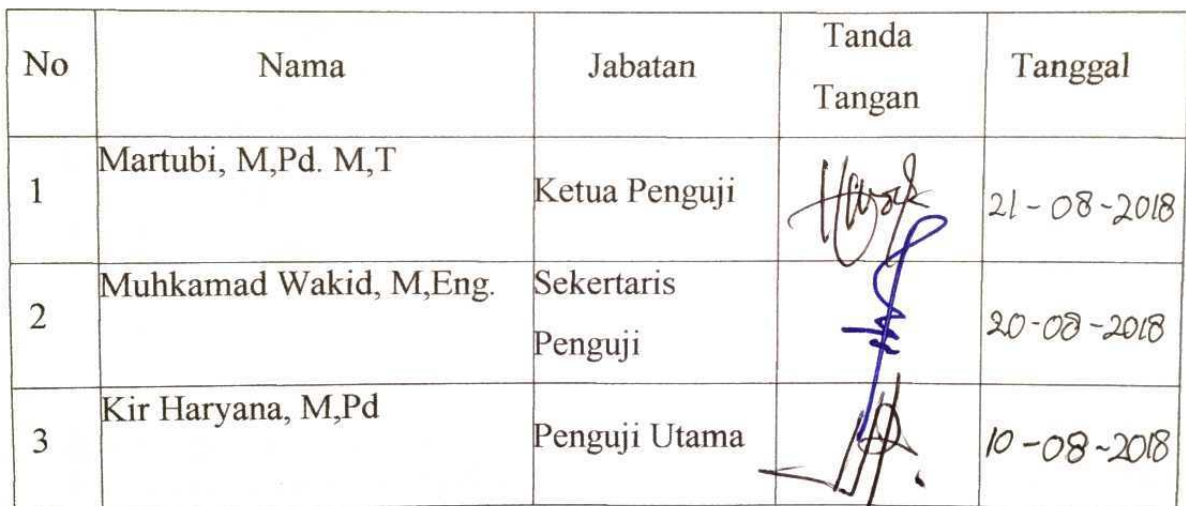 No Nama Jabatan Tanda Tangan Tanggal
1 Martubi, M,Pd. M,T Ketua Penguji 21-08-2018
2 Muhkamad Wakid, M,Eng. Sekertaris Penguji 20-08-2018
3 Kir Haryana, M,Pd Penguji Utama 10-08-2018